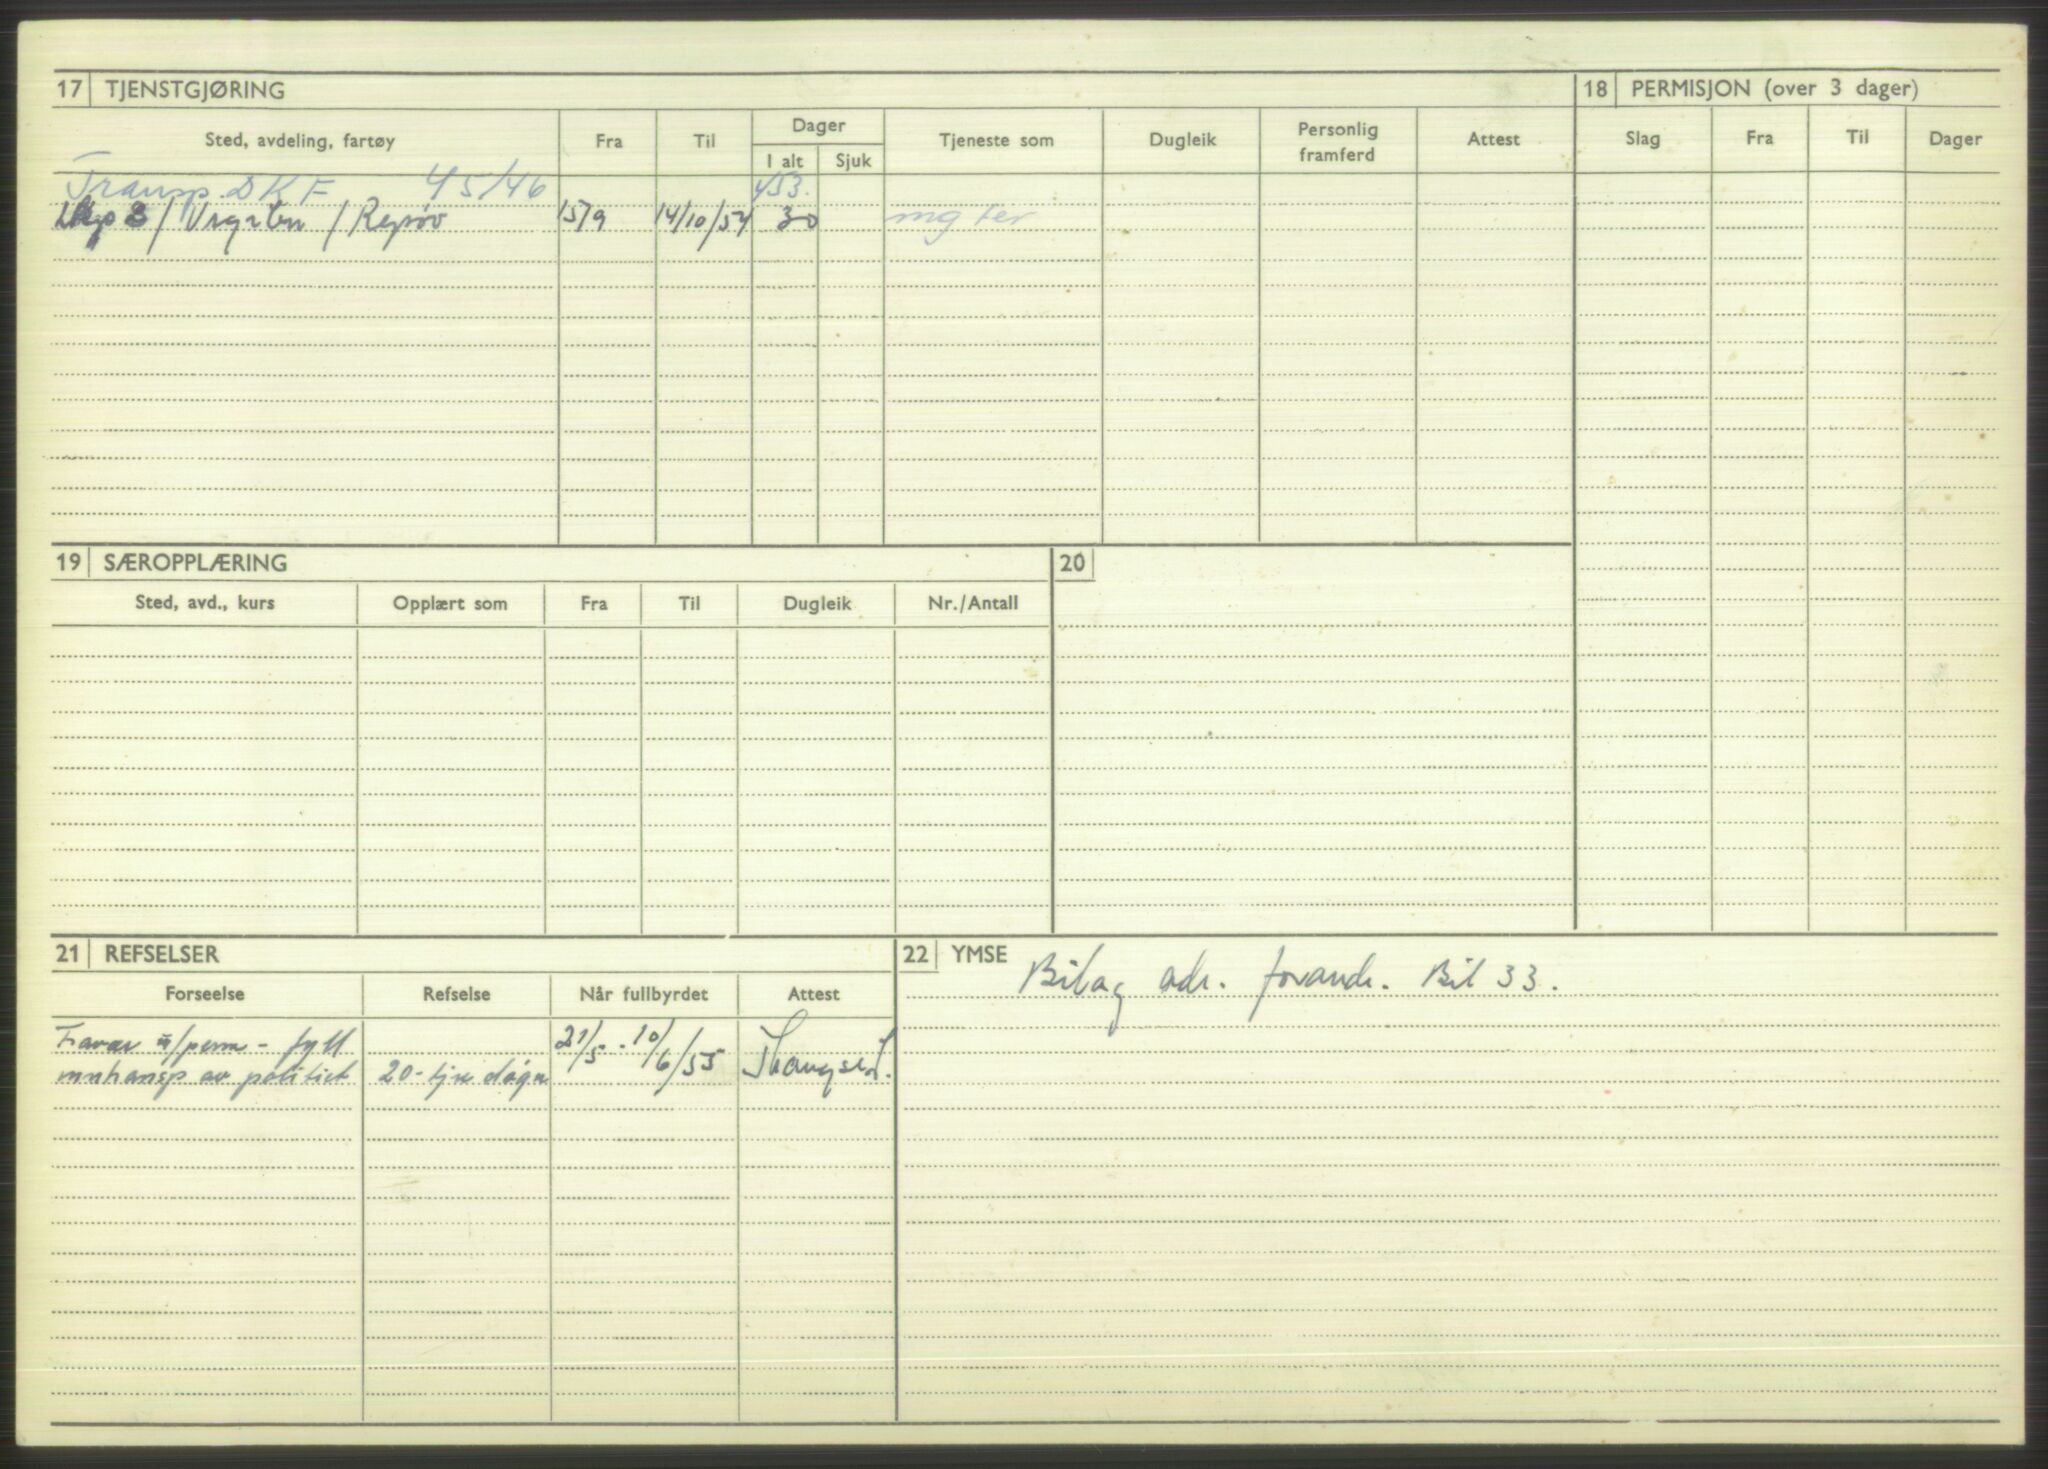 17 TJENSTGJØRING
Sted, avdeling, fartøy Fra Til Dager I alt Sjuk Tjeneste som Dugleik Personlig framferd Attest
Transp. DKF 45/46 453.
/ Repøv 15/9 14/10/54 30 mg ter
18 PERMISJON (over 3 dager)
Slag Fra Til Dager
19 SÆROPPLÆRING
Sted, avd., kurs Opplært som Fra Til Dugleik Nr./Antall
20
21 REFSELSER
Forseelse Refselse Når fullbyrdet Attest
/perm - fyll 21/5 - 10/6/55
av politiet 20-tjue
22 YMSE
Bilag adr. forandr. Bil 33.